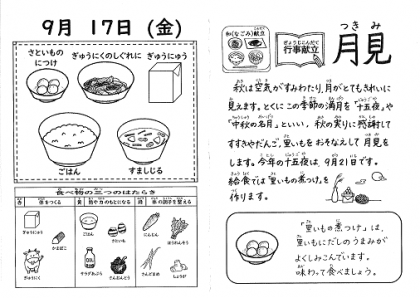 9月 17日 (金)
さといもの
につけ
ぎゅうにくのしぐれに
ぎゅうにゅう
ごはん
すましじる
食べ物の三つのはたらき
赤 体をつくる
黄 熱や力のもとになる
緑 体の調子を整える
ぎゅうにゅう
かまぼこ
ぎゅうにく
ごはん
さといも
サラダあぶら
にんじん
ほうれんそう
しょうが
和(なごみ)献立
ぎょうじこんだて
行事献立
つきみ
月見
秋は空気がすみわたり、月がとてもきれいに
見えます。とくにこの季節の満月を「十五夜」や
「中秋の名月」といい、秋の実りに感謝して
すすきやだんご、里いもをおそなえして月見を
します。今年の十五夜は、9月21日です。
給食では「里いもの煮つけ」を
作ります。
「里いもの煮つけ」は、
里いもにだしのうまみが
よくしみこんでいます。
味わって食べましょう。